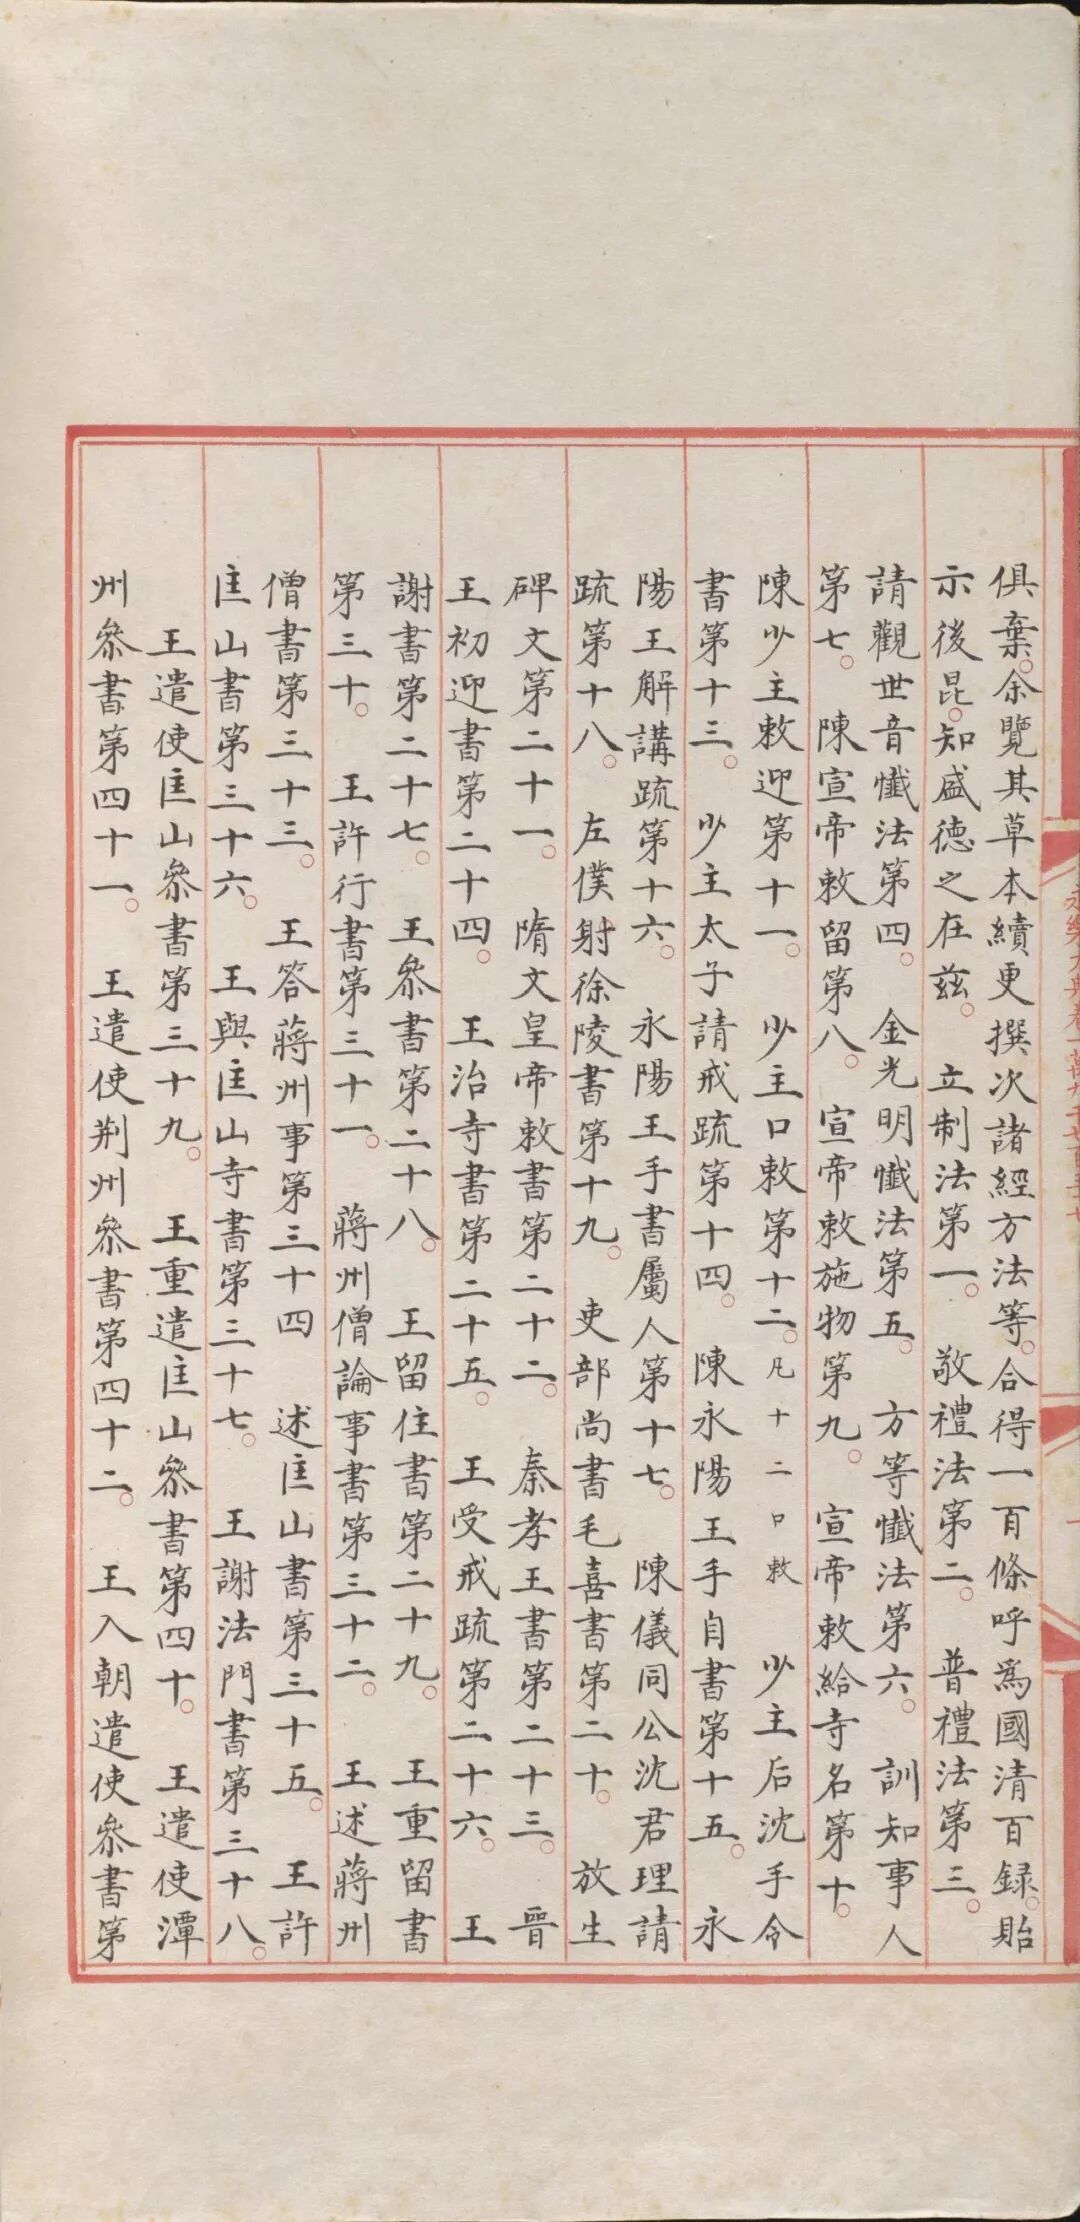 俱棄。余覽其草本續更撰次諸經方法等。合得一百條呼爲國清百録。貽
示後昆。知盛德之在茲。　立制法第一。　敬禮法第二。　普禮法第三。
請觀世音懺法第四。　金光明懺法第五。　方等懺法第六。　訓知事人
第七。　陳宣帝敕留第八。　宣帝敕施物第九。　宣帝敕給寺名第十。
陳少主敕迎第十一。　少主口敕第十二。凡十二口敕　少主后沈手令
書第十三。　少主太子請戒疏第十四。　陳永陽王手自書第十五。　永
陽王解講疏第十六。　永陽王手書屬人第十七。　陳儀同公沈君理請
疏第十八。　左僕射徐陵書第十九。　吏部尚書毛喜書第二十。　放生
碑文第二十一。　隋文皇帝敕書第二十二。　秦孝王書第二十三。　晉
王初迎書第二十四。　王治寺書第二十五。　王受戒疏第二十六。　王
謝書第二十七。　王叅書第二十八。　王留住書第二十九。　王重留書
第三十。　王許行書第三十一。　蔣州僧論事書第三十二。　王述蔣州
僧書第三十三。　王答蔣州事第三十四　述匡山書第三十五。　王許
匡山書第三十六。　王與匡山寺書第三十七。　王謝法門書第三十八。
　王遣使匡山叅書第三十九。　王重遣匡山叅書第四十。　王遣使潭
州叅書第四十一。　王遣使荆州叅書第四十二。　王入朝遣使叅書第